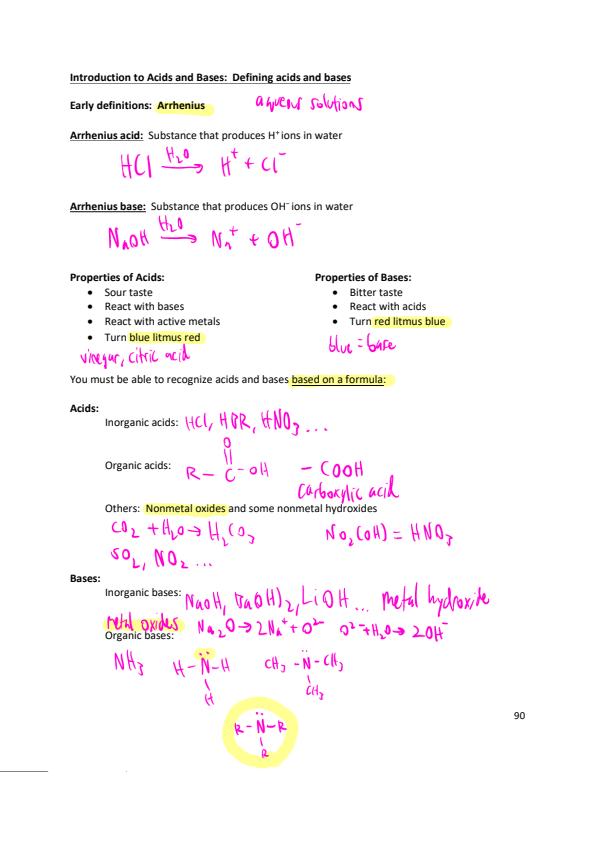 Introduction to Acids and Bases: Defining acids and bases
Early definitions: Arrhenius aqueous solutions
Arrhenius acid: Substance that produces H⁺ ions in water
HCl —H₂O→ H⁺ + Cl⁻
Arrhenius base: Substance that produces OH⁻ ions in water
NaOH —H₂O→ Na⁺ + OH⁻
Properties of Acids:
• Sour taste
• React with bases
• React with active metals
• Turn blue litmus red
vinegar, citric acid
Properties of Bases:
• Bitter taste
• React with acids
• Turn red litmus blue
blue = base
You must be able to recognize acids and bases based on a formula:
Acids:
Inorganic acids: HCl, HBR, HNO₃ ...
O
||
Organic acids: R – C – OH – COOH
carboxylic acid
Others: Nonmetal oxides and some nonmetal hydroxides
CO₂ + H₂O → H₂CO₃ NO₂(OH) = HNO₃
SO₂, NO₂ ...
Bases:
Inorganic bases: NaOH, Ba(OH)₂, LiOH ... metal hydroxide
metal oxides Na₂O → 2Na⁺ + O²⁻ O²⁻ + H₂O → 2OH⁻
Organic bases:
NH₃ H – N̈ – H CH₃ – N̈ – CH₃
| |
H CH₃
90
R – N̈ – R
|
R